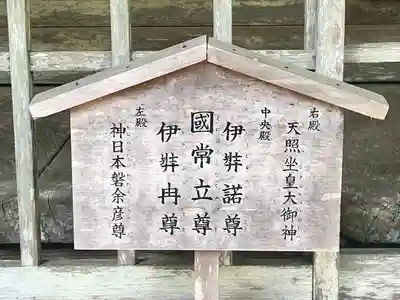 右殿
天照坐皇大御神
中央殿
伊弉諾尊
國常立尊
伊弉冉尊
左殿
神日本磐余彦尊